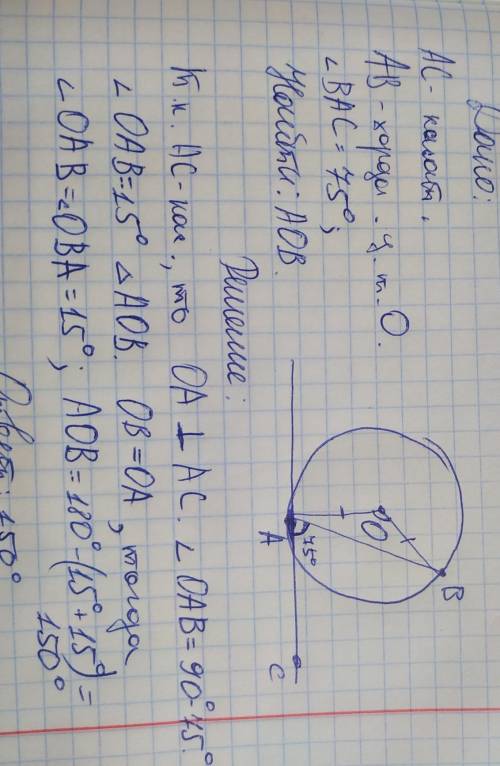 Дано:
AC - касат.
AB - хорда - ц. т. O.
∠BAC = 75°;
Найти: AOB.
O
B
A
75°
C
Решение:
Т.к. AC - кас., то OA ⊥ AC. ∠OAB = 90°-75°
∠OAB = 15° △AOB. OB = OA, тогда
∠OAB = ∠OBA = 15°; AOB = 180° - (15° + 15°) =
150°
Ответ: 150°